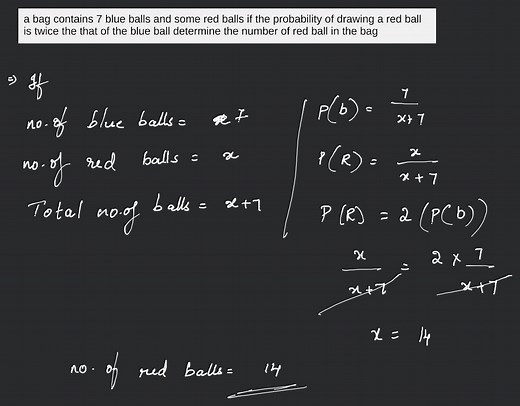 a bag contains 7 blue balls and some red balls if the probability of drawing a red ball
is twice the that of the blue ball determine the number of red ball in the bag
⇒ If
no. of blue balls = 7
no. of red balls = x
Total no. of balls = x+7
P(b) = 7/(x+7)
P(R) = x/(x+7)
P(R) = 2(P(b))
x/(x+7) = 2 × 7/(x+7)
x = 14
no. of red balls = 14